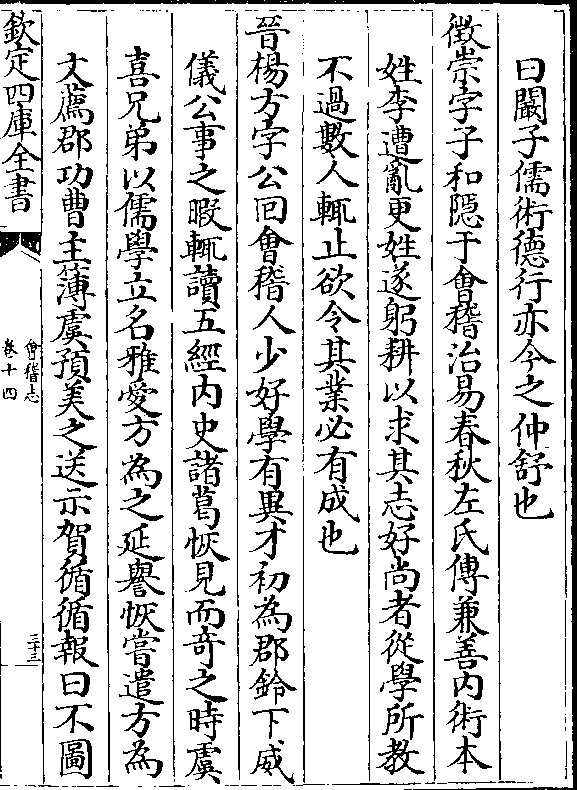 曰闞子儒術德行亦今之仲舒也
徵崇字子和隠于會稽治易春秋左氏傳兼善内術本
姓李遭亂更姓遂躬耕以求其志好尚者從學所教
不過數人輒止欲令其業必有成也
晉楊方字公回會稽人少好學有異才初為郡鈴下威
儀公事之暇輒讀五經内史諸葛恢見而奇之時虞
喜兄弟以儒學立名雅愛方為之延譽恢嘗遣方為
文薦郡功曹主簿虞預美之送示賀循循報曰不圖
欽定四庫全書
會稽志
卷十四
三十三